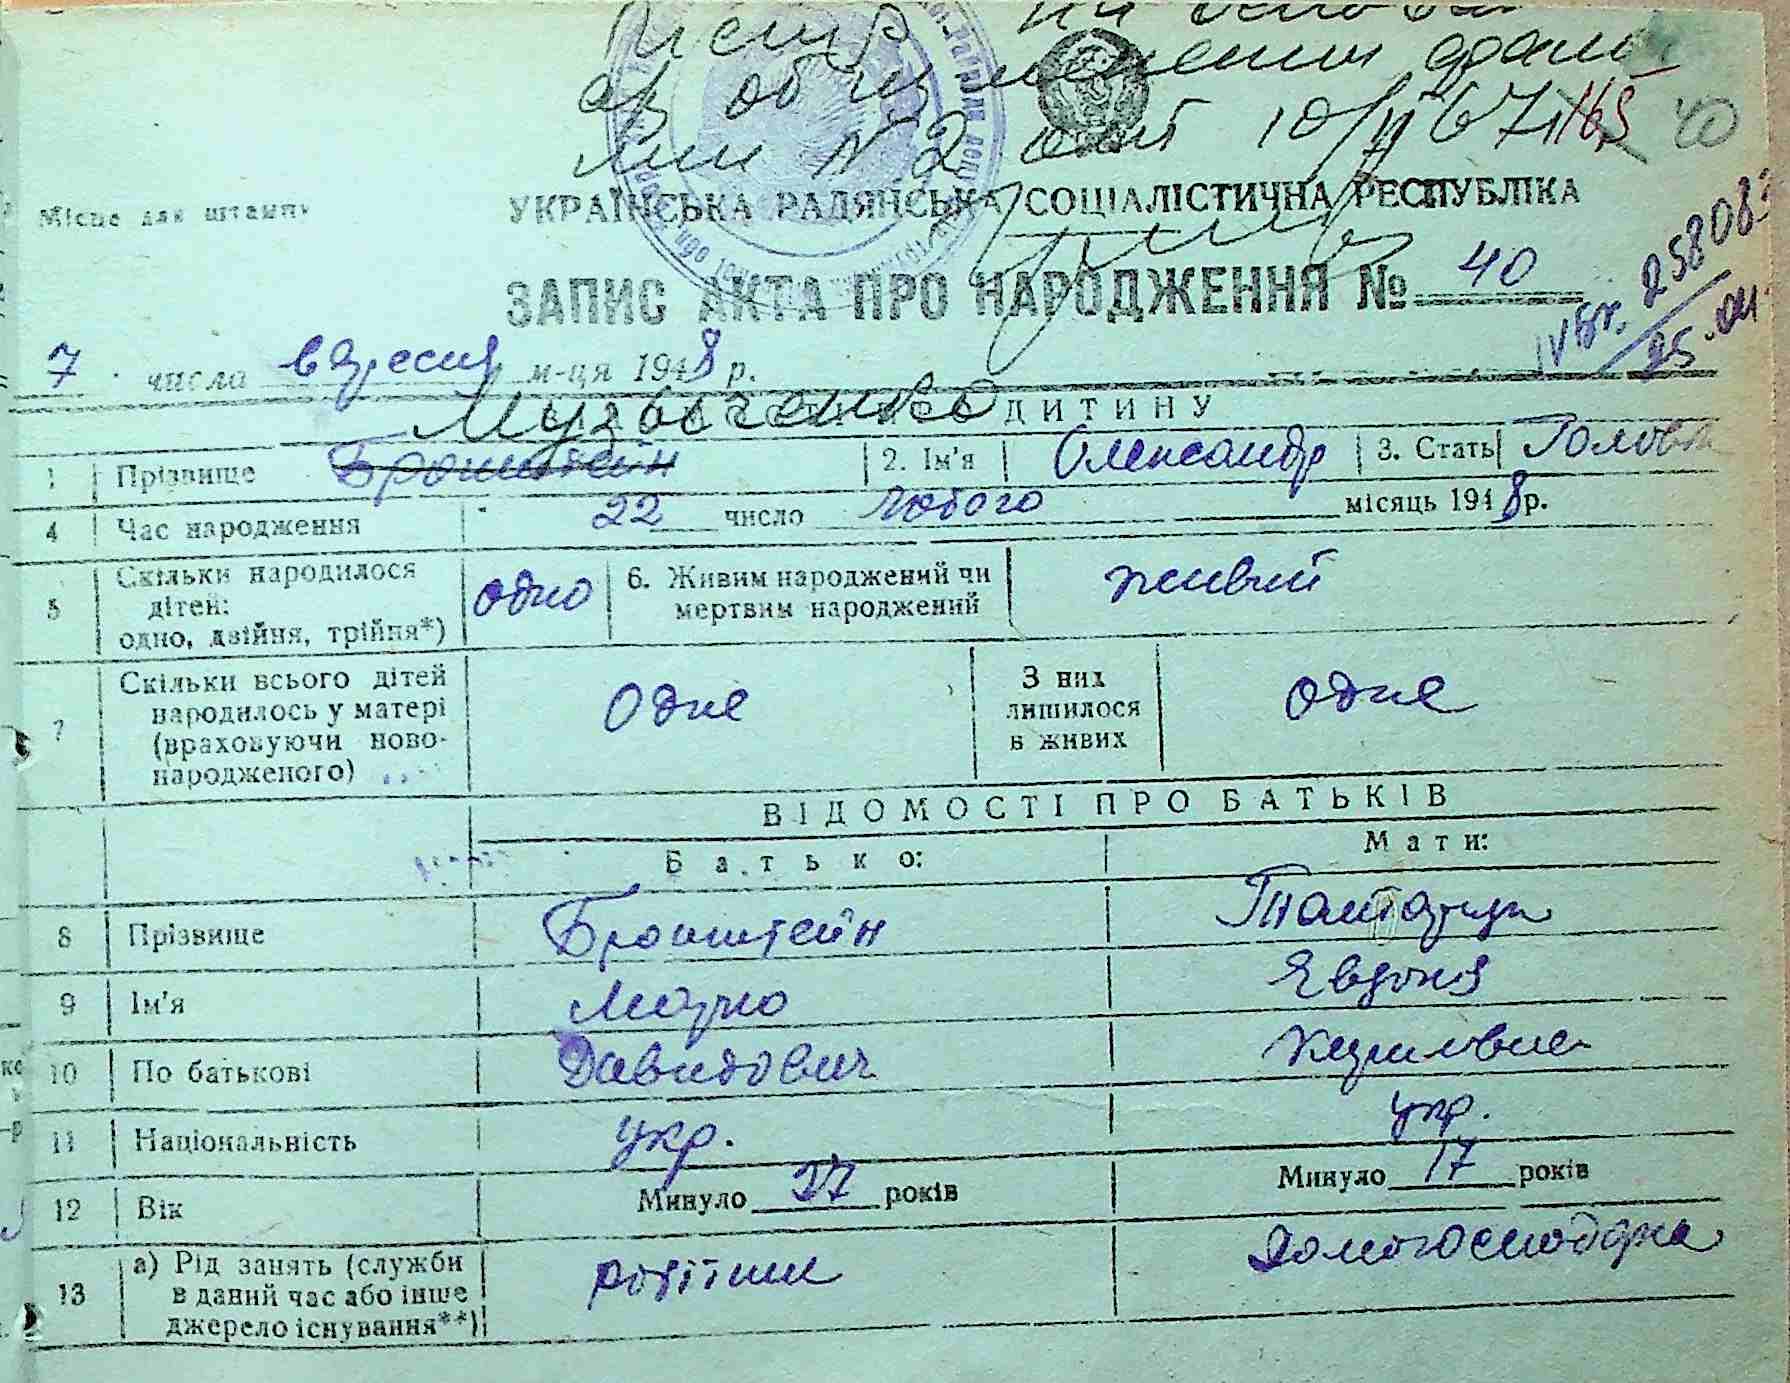 на
об
N 2 от 10/II 67 г. 165 40
Місце для штампу УКРАЇНСЬКА РАДЯНСЬКА СОЦІАЛІСТИЧНА РЕСПУБЛІКА
ЗАПИС АКТА ПРО НАРОДЖЕННЯ № 40
IV БГ. 258083
25.04
7 числа вересня м-ця 1948 р.
Музыченко ДИТИНУ
1 Прізвище Бронштейн 2. Ім'я Олександр 3. Стать Головіч
4 Час народження 22 число Лютого місяць 1948 р.
5 Скільки народилося дітей: одно, двійня, трійня*) одно 6. Живим народжений чи мертвим народжений живий
7 Скільки всього дітей народилось у матері (враховуючи ново-народженого) Одне З них лишилося в живих одне
ВІДОМОСТІ ПРО БАТЬКІВ
Батько: Мати:
8 Прізвище Бронштейн
9 Ім'я Явдоня
10 По батькові Давидович Кирилівна
11 Національність укр. укр.
12 Вік Минуло 27 років Минуло 17 років
13 а) Рід занять (служби в даний час або інше джерело існування**) робітник Домогосподарка